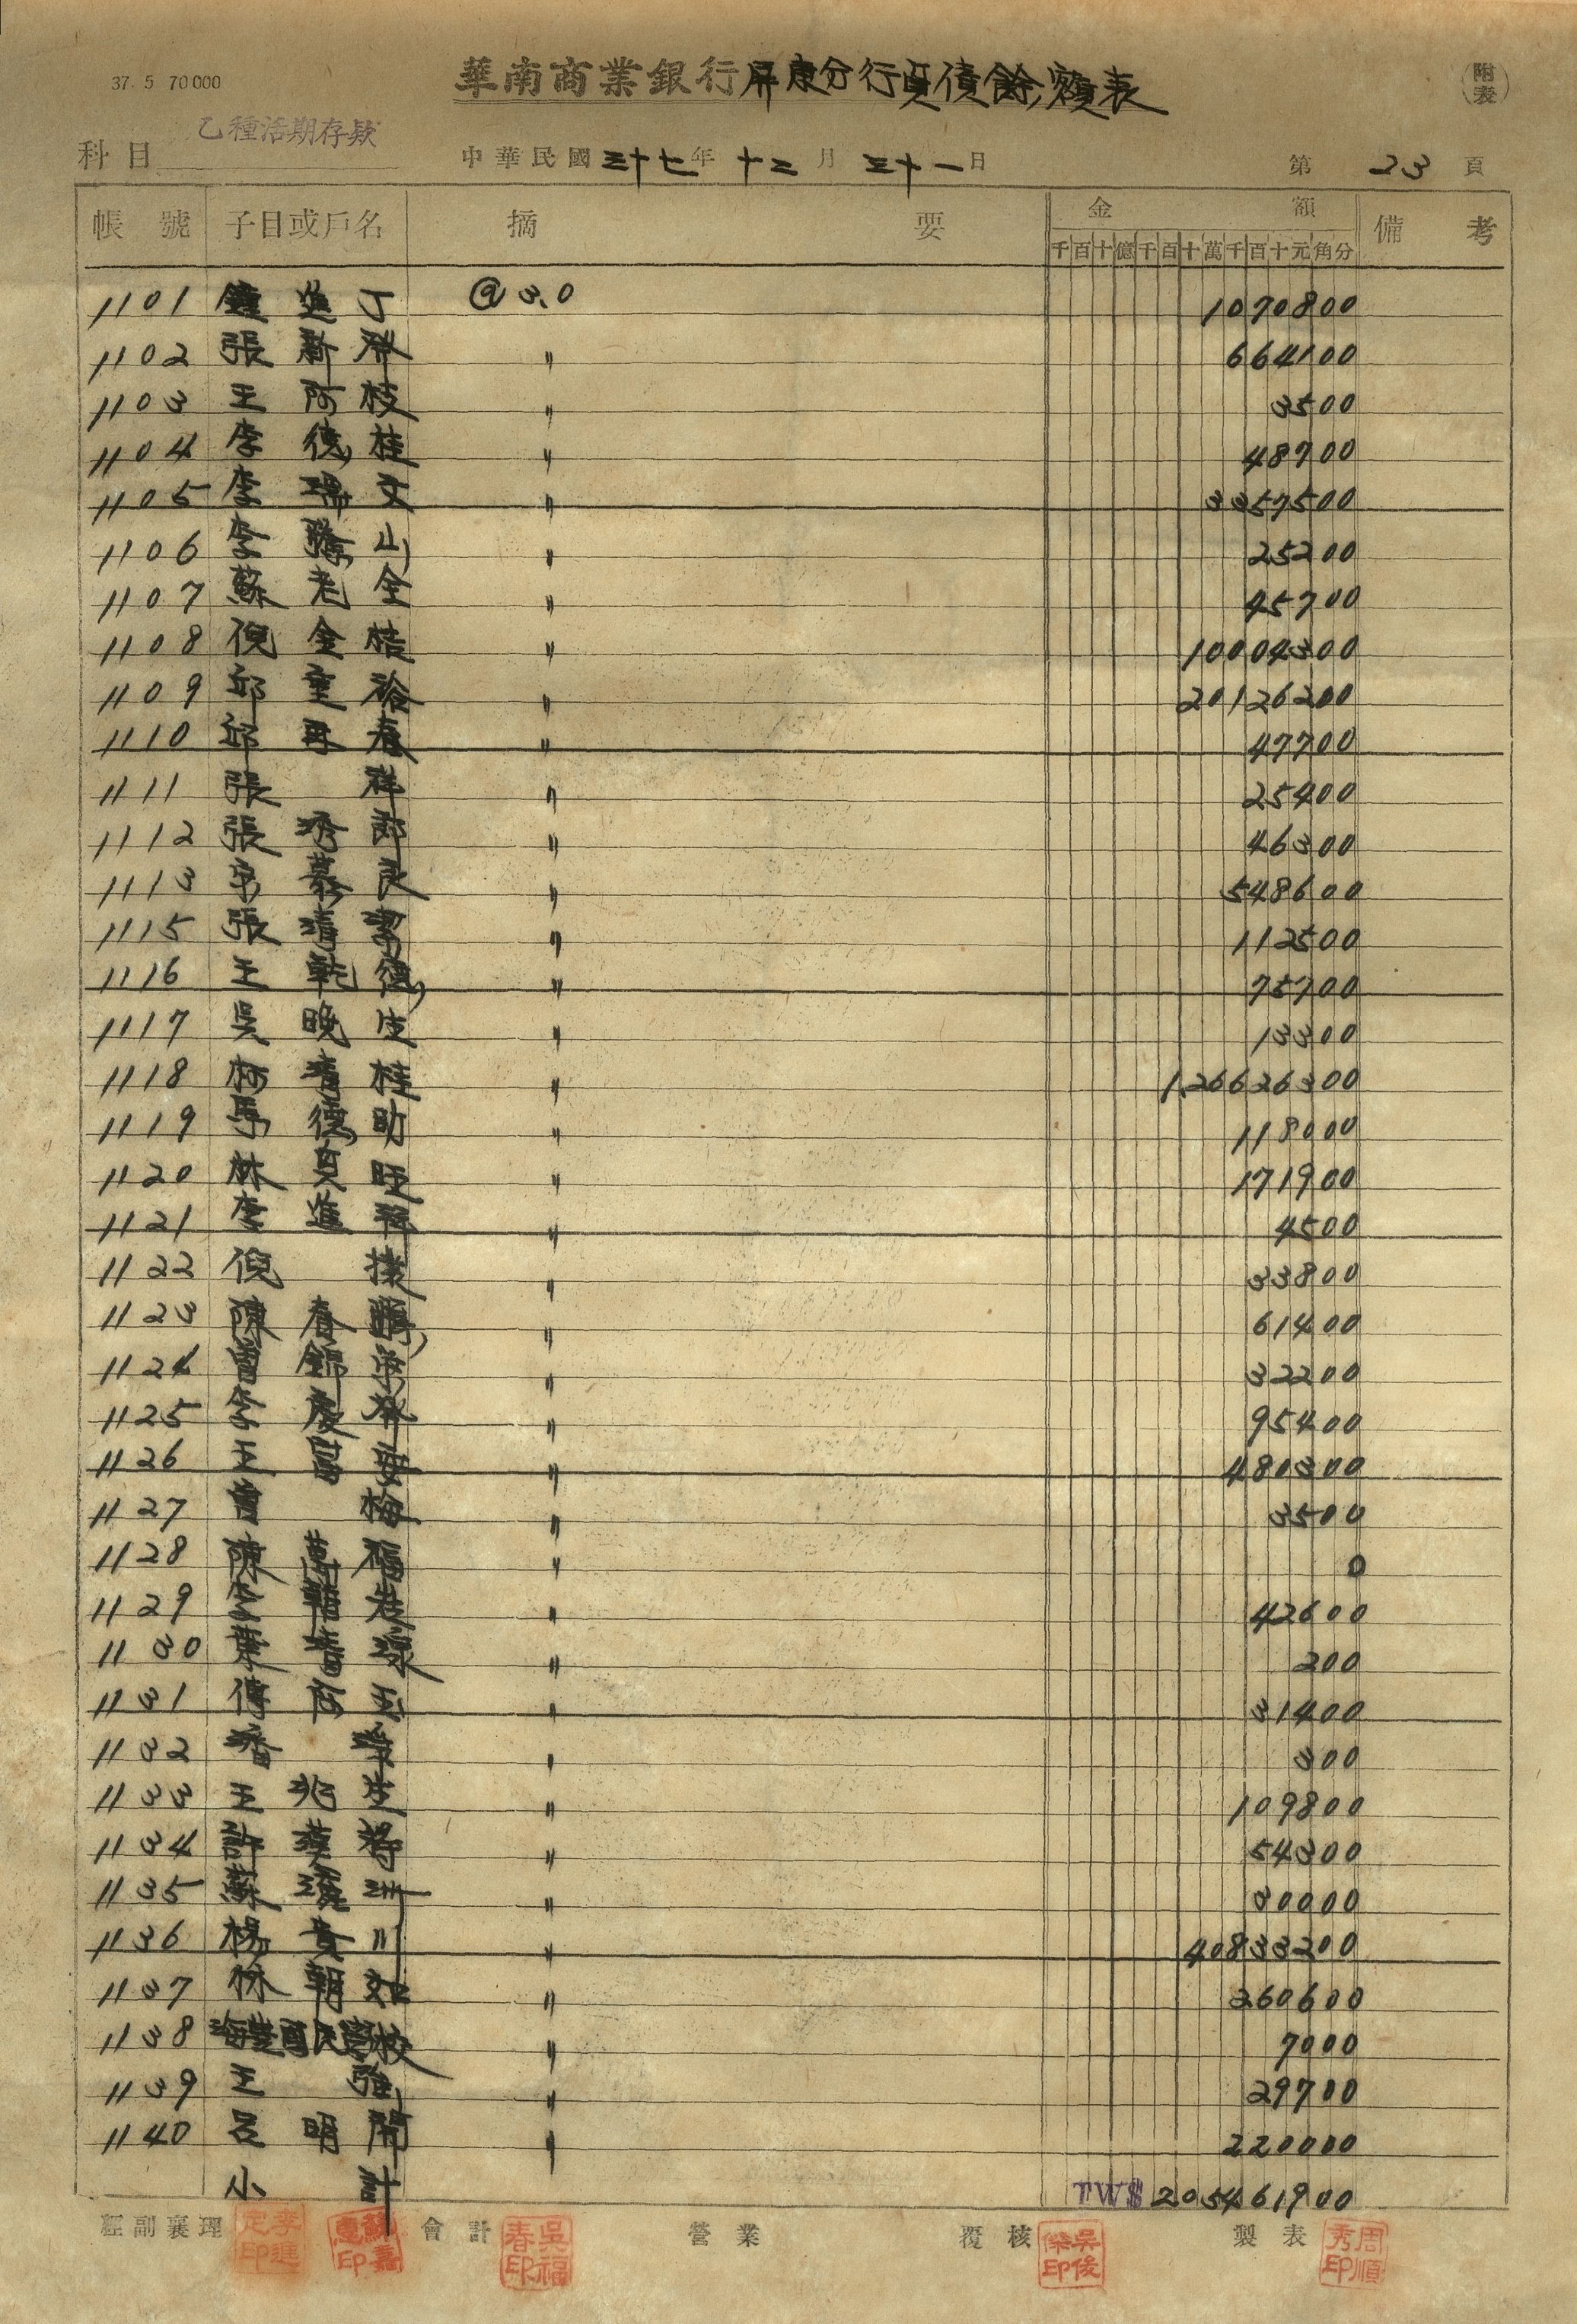 37. 5 70000
華南商業銀行屏東分行負債餘額表
(附表)
科目 乙種活期存款 中華民國三十七年十二月三十一日 第23頁
帳號 子目或戶名 摘要 金額 備考
千百十億千百十萬千百十元角分
1101 鍾進丁 @3.0 1070800
1102 張新發 〃 664100
1103 王阿枝 〃 3500
1104 李德桂 〃 48700
1105 李瑞文 〃 3357500
1106 李騰山 〃 25200
1107 蘇老全 〃 45700
1108 倪金桔 〃 10004300
1109 邱重裕 〃 20126200
1110 邱再春 〃 47700
1111 張祥 〃 25400
1112 張秀郎 〃 46300
1113 慕良 〃 548600
1115 張清 〃 112500
1116 王乾德 〃 75700
1117 吳晚生 〃 13300
1118 柯清桂 〃 126626300
1119 馬德助 〃 118000
1120 林貝旺 〃 171900
1121 李進 〃 4500
1122 倪 〃 33800
1123 陳春 〃 61400
1124 曾錦榮 〃 32200
1125 李慶發 〃 95400
1126 王富安 〃 480300
1127 曾梅 〃 3500
1128 陳萬福 〃 0
1129 李 〃 42600
1130 葉清 〃 200
1131 傅阿玉 〃 31400
1132 潘 〃 300
1133 王兆生 〃 109800
1134 許 〃 54300
1135 蘇 〃 30000
1136 楊貴川 〃 40833200
1137 林朝 〃 260600
1138 海豐國民學校 〃 7000
1139 王強 〃 29700
1140 呂明開 〃 220000
小計 TW$ 205461900
經副襄理 李進定印 蘇嘉惠印 會計 吳福春印 營業 覆核 吳俊傑印 製表 周順秀印